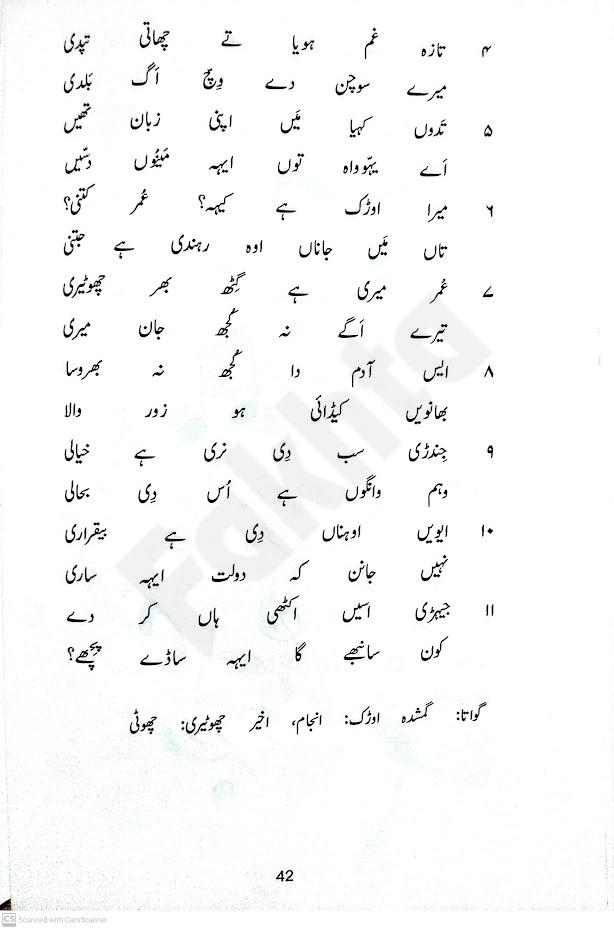 ۴ تازہ غم ہویا تے چھاتی تپدی
میرے سوچن دے وِچ اَگ بَلدی
۵ تَدوں کہیا مَیں اپنی زبان تھیں
اَے یہّوواہ توں ایہہ مَینُوں دسّیں
۶ میرا اوڑک ہے کیہہ؟ عُمر کتنی؟
تاں مَیں جاناں اوہ رہندی ہے جتنی
۷ عُمر میری ہے گِٹھ بھر چھوٹیری
تیرے اَگے نہ کُجھ جان میری
۸ ایس آدم دا کُجھ نہ بھروسا
بھانویں کیڈائی ہو زور والا
۹ جِندڑی سب دِی نری ہے خیالی
وہم وانگوں ہے اُس دِی بحالی
۱۰ ایویں اوہناں دِی ہے بیقراری
نہیں جانن کہ دولت ایہہ ساری
۱۱ جیہڑی اسیں اکٹھی ہاں کر دے
کون سانبھے گا ایہہ ساڈے پِچھے؟
گواتا: گمشدہ اوڑک: انجام، اخیر چھوٹیری: چھوٹی
Fakhta
42
CS Scanned with CamScanner